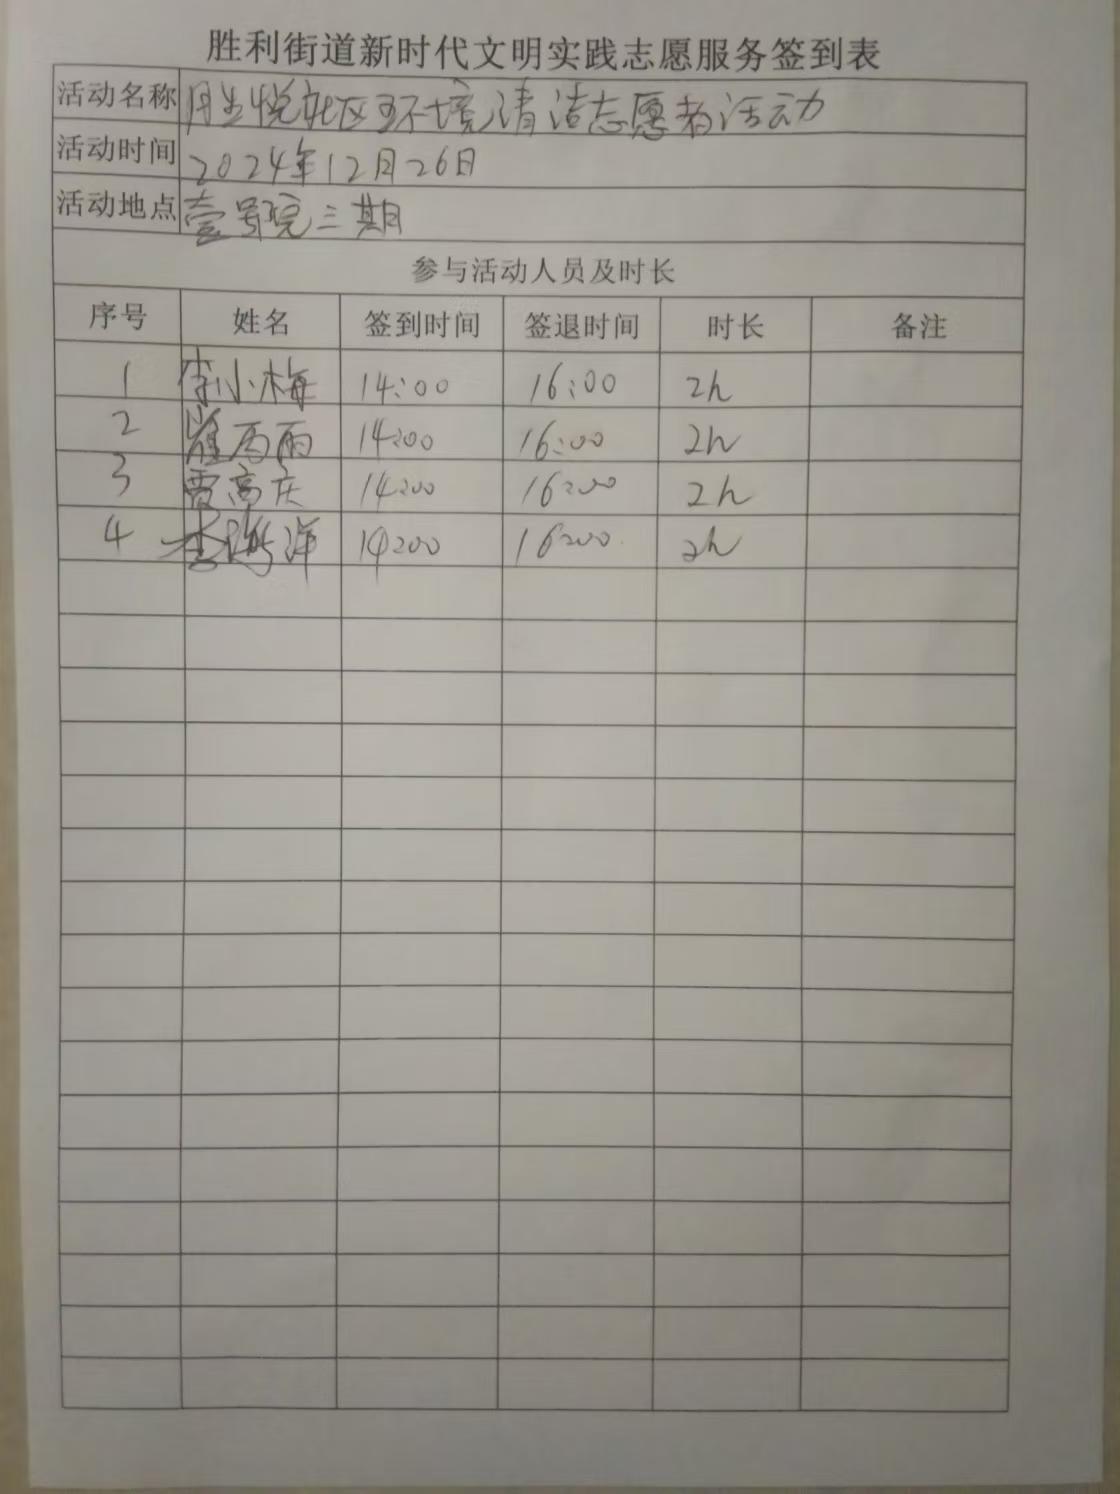 胜利街道新时代文明实践志愿服务签到表
活动名称 胜悦社区环境清洁志愿者活动
活动时间 2024年12月26日
活动地点 壹号院三期
参与活动人员及时长
序号 姓名 签到时间 签退时间 时长 备注
1 李小梅 14:00 16:00 2h
2 雨 14:00 16:00 2h
3 贾高庆 14:00 16:00 2h
4 李海洋 14:00 16:00 2h